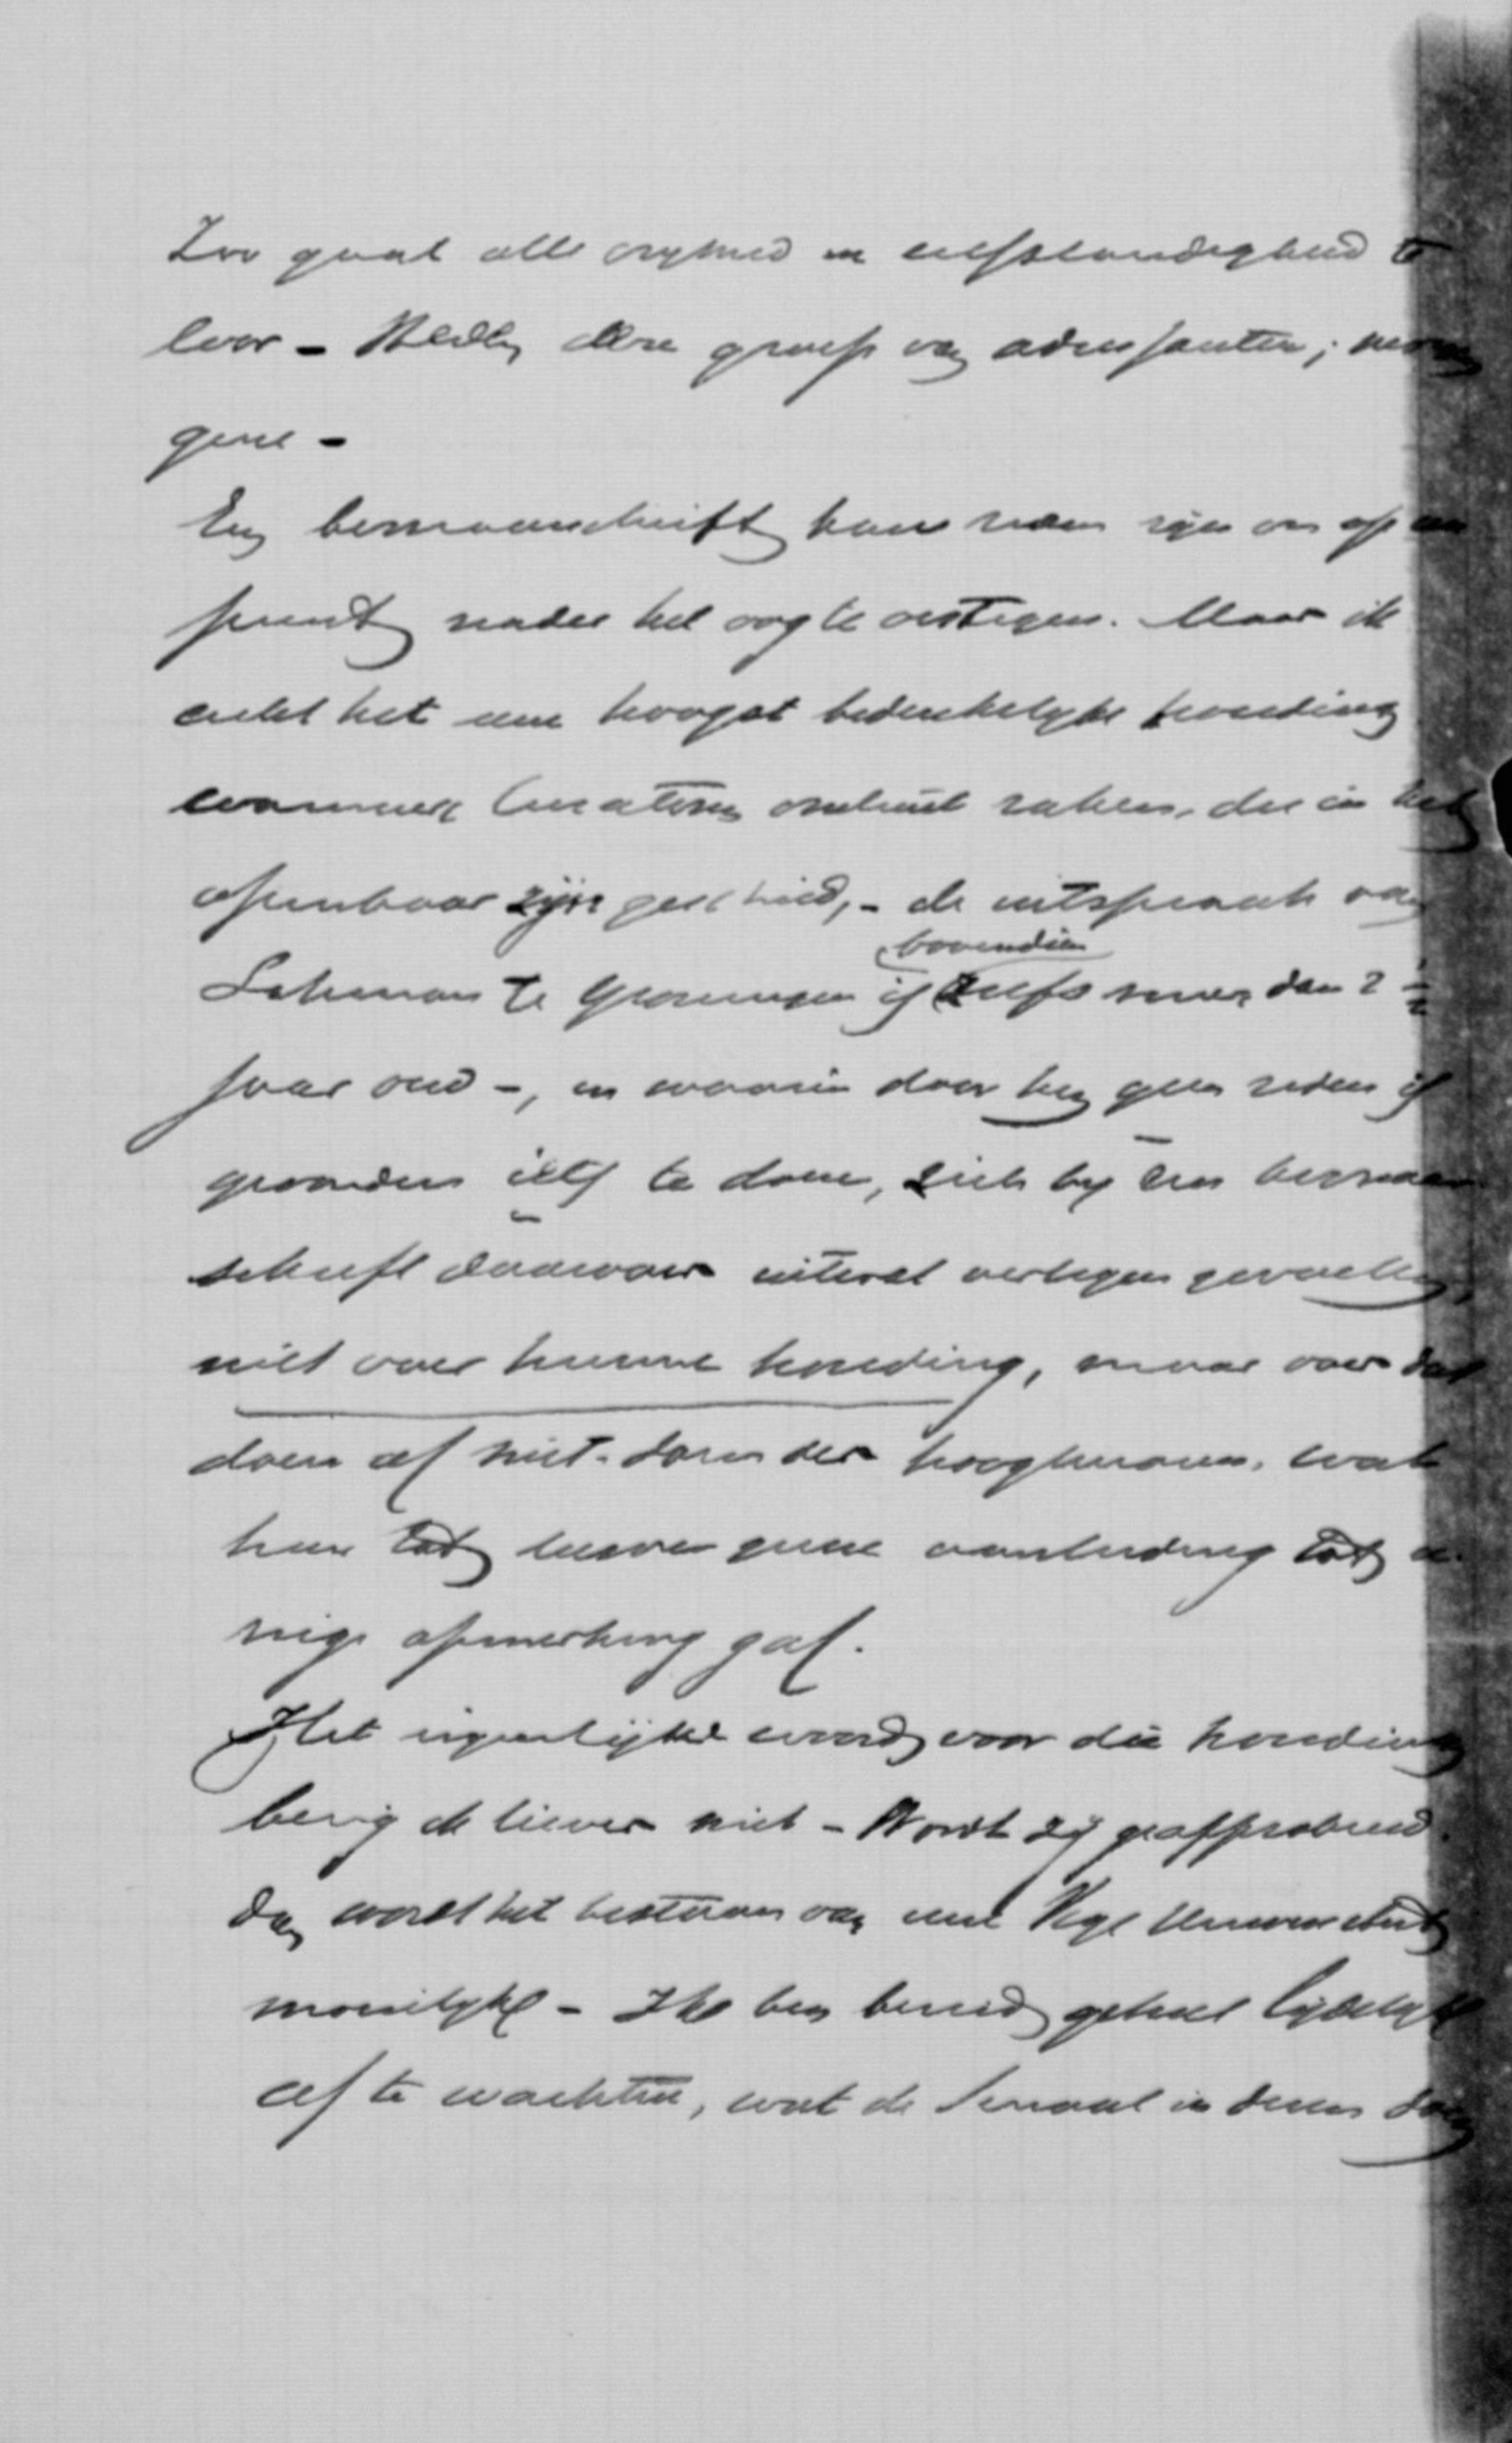 Zoo gaat alle vryheid en zelfstandigheid te
loor - Heden deze groep van adressanten; morgen
gene -
Een bezwaarschrift kan reden zijn om op een
punt nader het oog te vestigen. Maar ik
acht het eene hoogst bedenkelyke houding
wanneer Curatoren omtrent zaken, die in het
openbaar zijn geschied, - de uitspraak van
Lohman te Groningen is bovendien zelfs meer dan 2 ½
jaar oud -, en waarin door hen geen reden is
gevonden iets te doen, zich by een bezwaar
schrift daarover uiterst verlegen gevoelen,
niet over hunne houding, maar over dat
doen of niet-doen der hoogleeraren, wat
hun tot heden geene aanleiding tot ee-
nige opmerking gaf.
Het eigenlijke woord voor die houding
bezig ik liever niet - Wordt zij geapprobeerd
dan wordt het bestaan van eene Vrye Universiteit
moeilyk - Ik ben bereid geheel lijdelyk
af te wachten, wat de Senaat in dezen doen